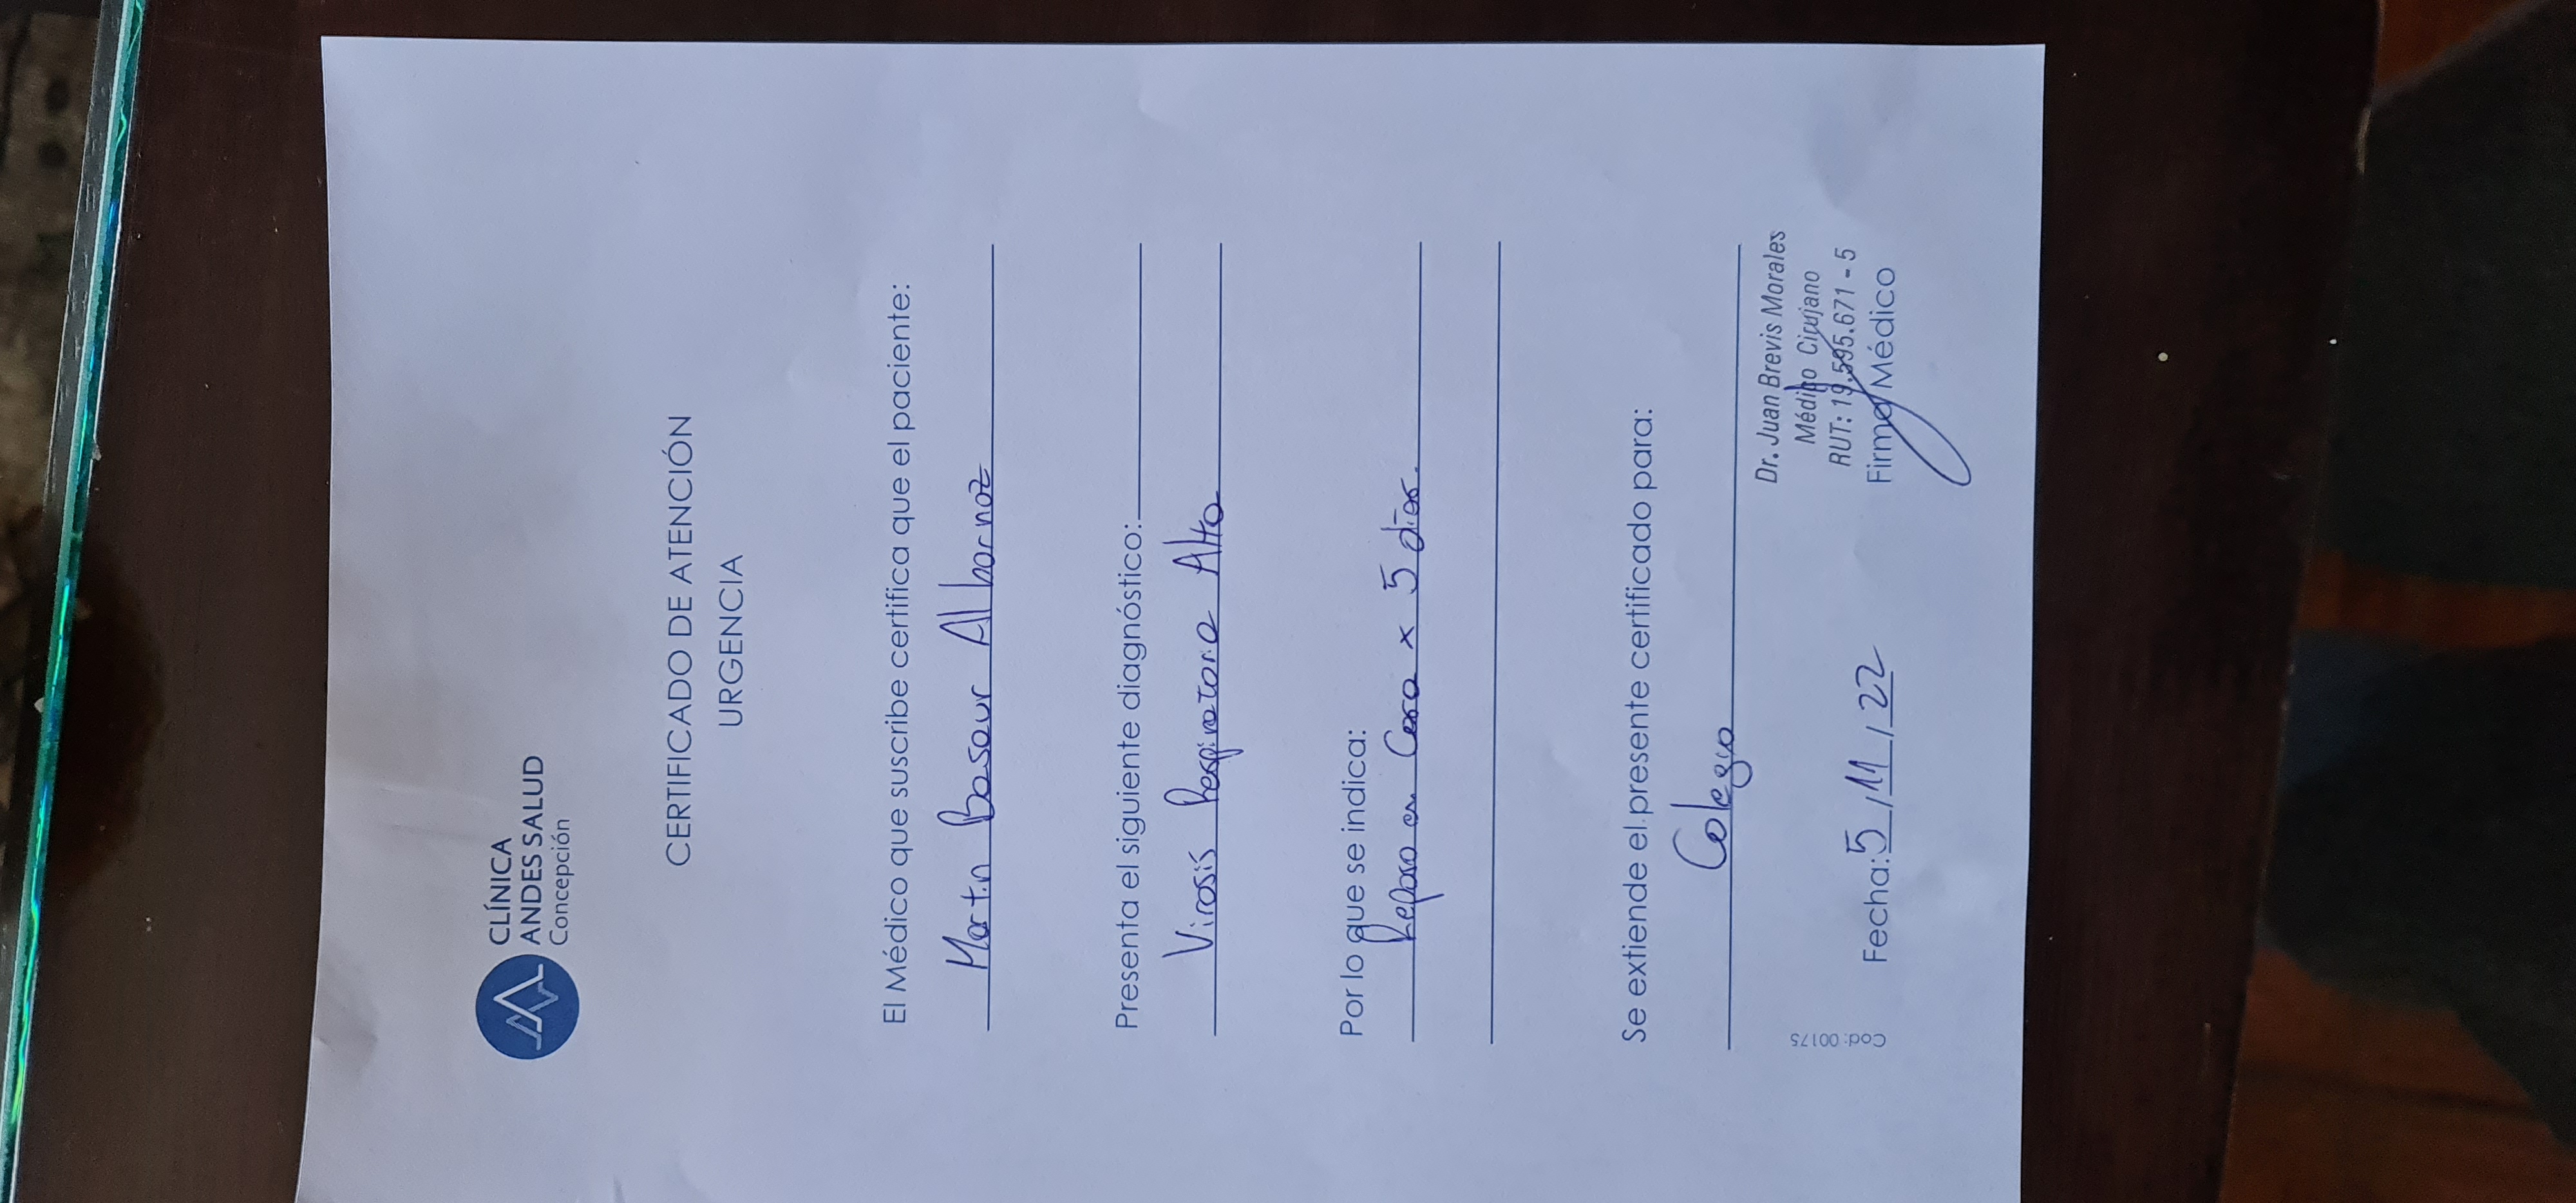 CLÍNICA
ANDES SALUD
Concepción
CERTIFICADO DE ATENCIÓN
URGENCIA
El Médico que suscribe certifica que el paciente:
Martin Basaur Albornoz
Presenta el siguiente diagnóstico:
Virosis Respiratoria Alta
Por lo que se indica:
Reposo en Casa x 5 días.
Se extiende el presente certificado para:
Colegio
Dr. Juan Brevis Morales
Médico Cirujano
RUT: 19.595.671-5
Fecha: 5 / 11 / 22
Firma Médico
Cod: 00175